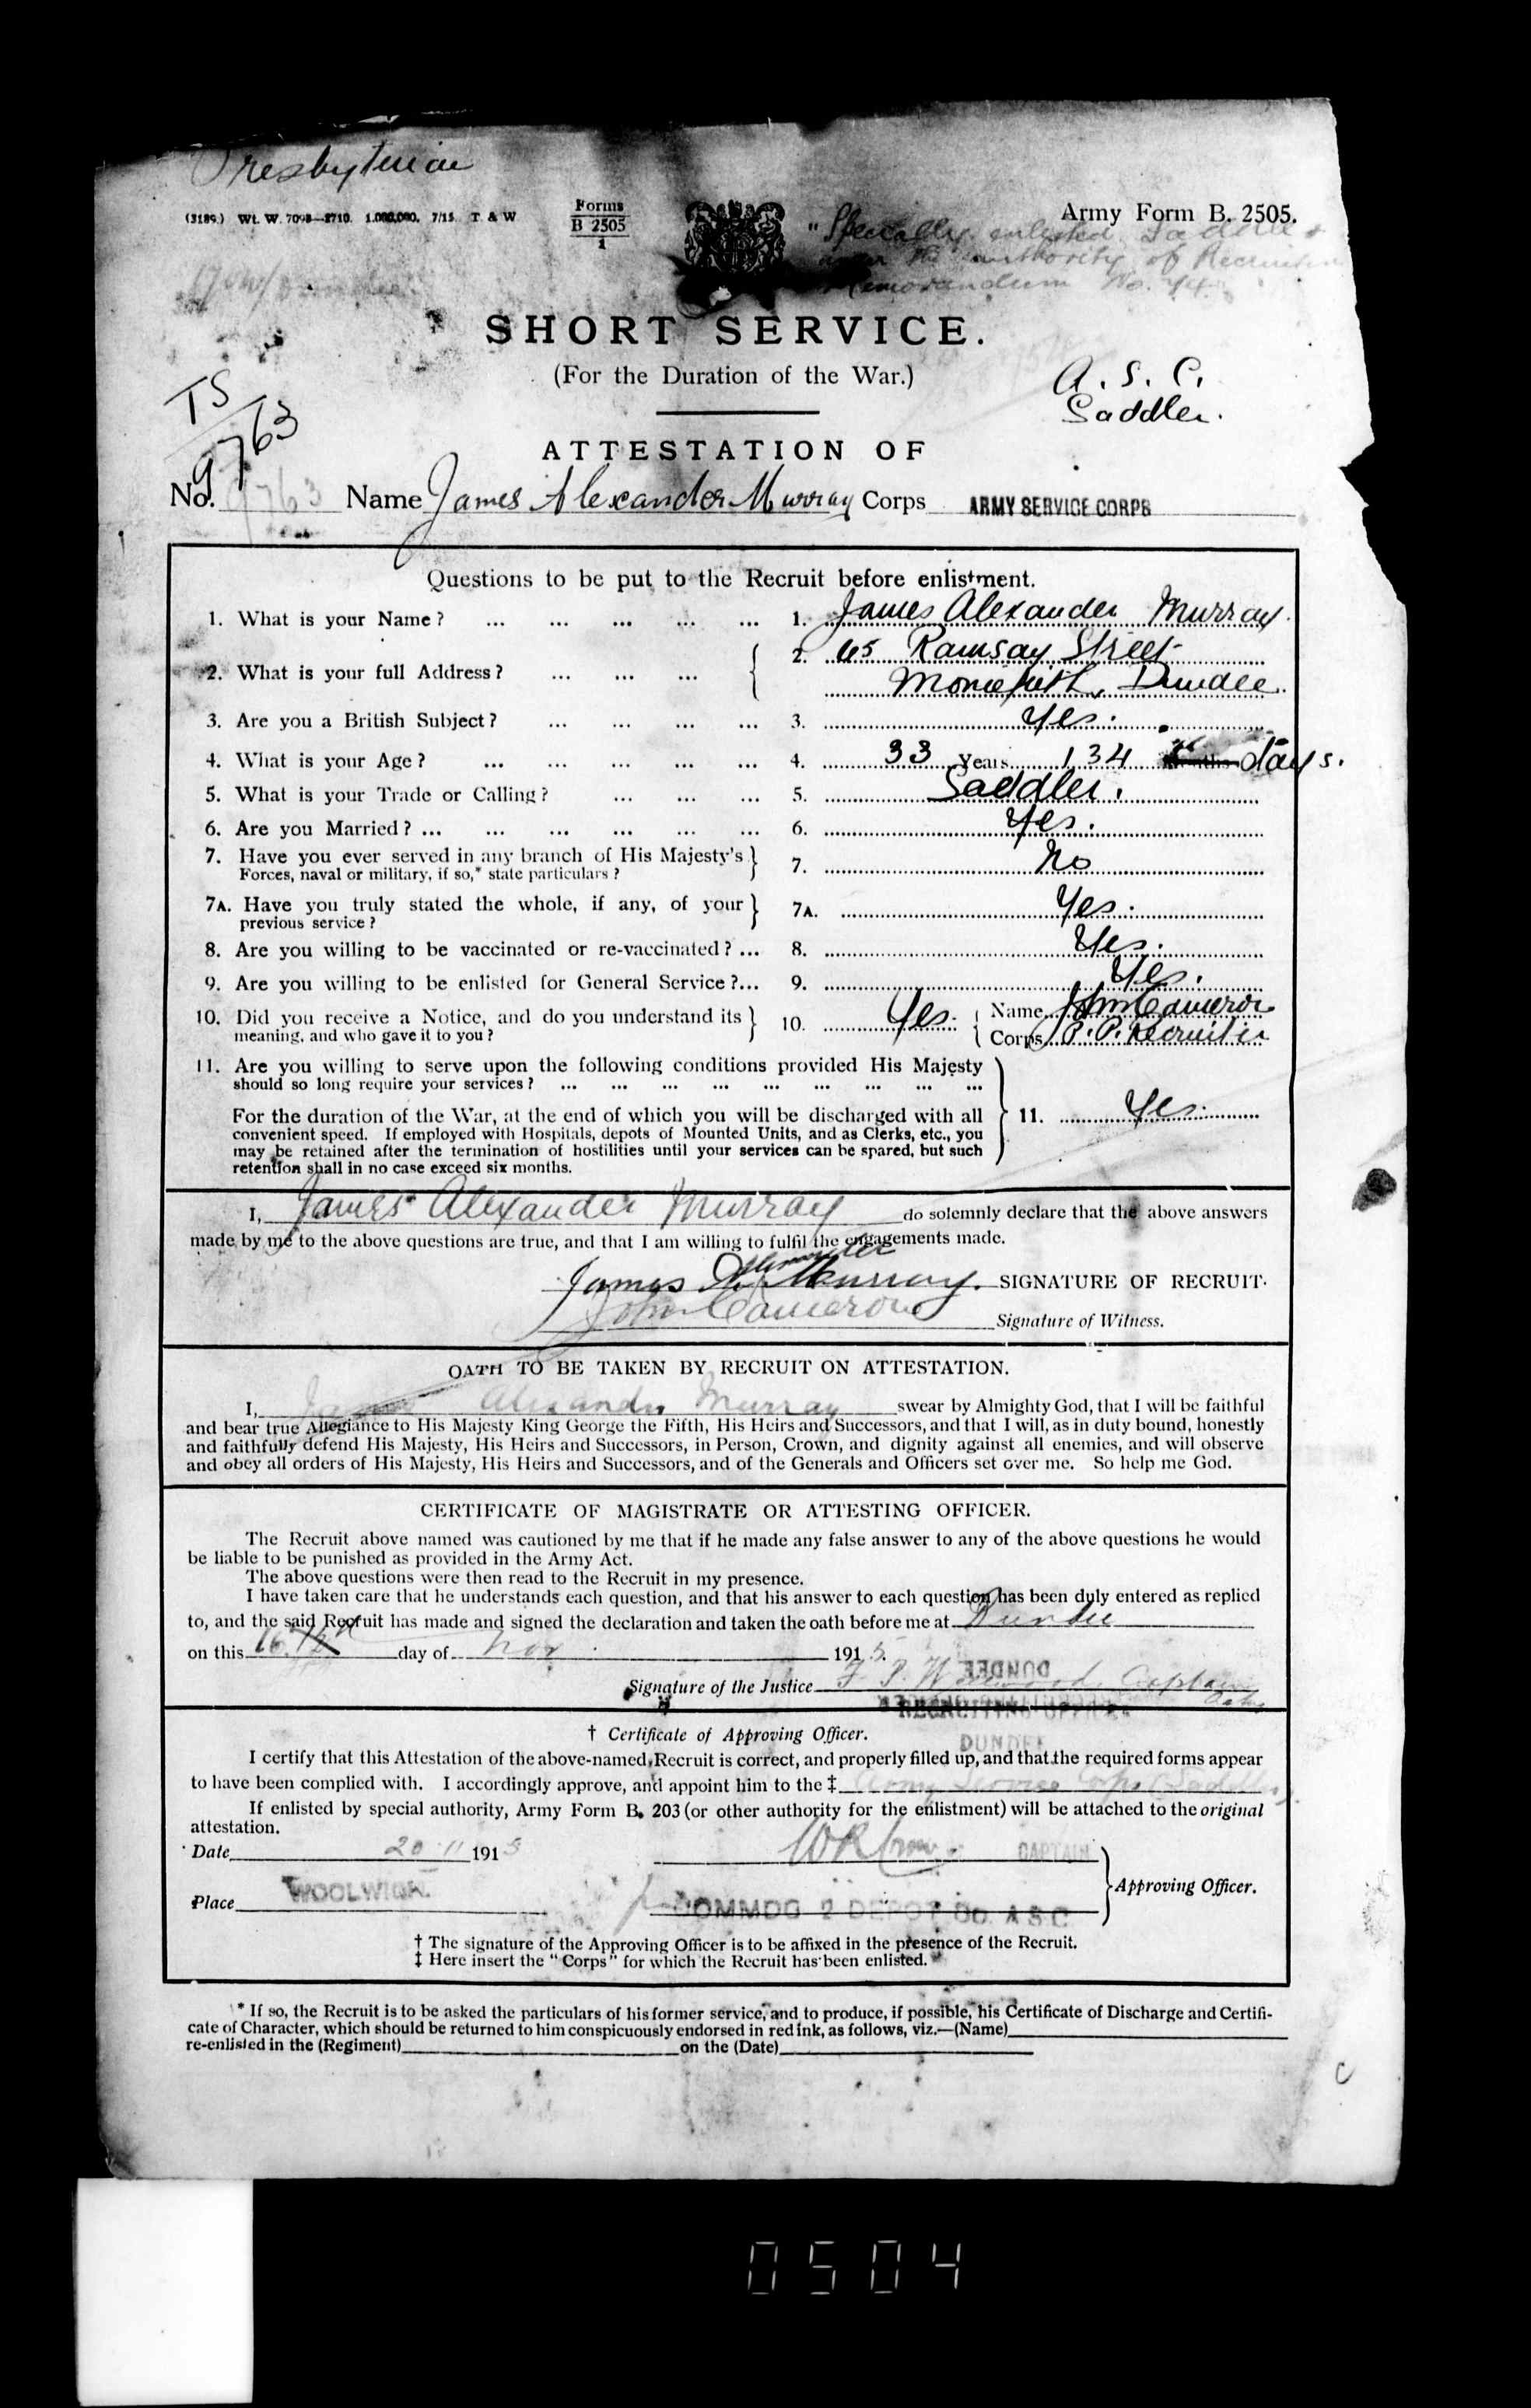 Presbyterian
(3189.) Wt. W. 7098—2710. 1,000,000. 7/15. T & W
Forms
B 2505
1
Army Form B. 2505.
"Specially enlisted Saddler
under the authority of Recruiting
Memorandum No. 44.
SHORT SERVICE.
(For the Duration of the War.)
A. S. C.
Saddler.
TS
9763
ATTESTATION OF
No. 9763 Name James Alexander Murray Corps ARMY SERVICE CORPS
Questions to be put to the Recruit before enlistment.
1. What is your Name? ... ... ... ... ... 1. James Alexander Murray.
2. What is your full Address? ... ... ... 2. 65 Ramsay Street
Monifieth, Dundee.
3. Are you a British Subject? ... ... ... ... 3. Yes.
4. What is your Age? ... ... ... ... ... 4. 33 Years 134 days.
5. What is your Trade or Calling? ... ... ... 5. Saddler.
6. Are you Married? ... ... ... ... ... ... 6. Yes.
7. Have you ever served in any branch of His Majesty's
Forces, naval or military, if so,* state particulars? 7. No
7A. Have you truly stated the whole, if any, of your
previous service? 7A. Yes.
8. Are you willing to be vaccinated or re-vaccinated? ... 8. Yes.
9. Are you willing to be enlisted for General Service?... 9. Yes.
10. Did you receive a Notice, and do you understand its
meaning, and who gave it to you? 10. Yes. Name John Cameron
Corps P. P. Recruiter
11. Are you willing to serve upon the following conditions provided His Majesty
should so long require your services? ... ... ... ... ... ... ... ... ...
For the duration of the War, at the end of which you will be discharged with all 11. Yes.
convenient speed. If employed with Hospitals, depots of Mounted Units, and as Clerks, etc., you
may be retained after the termination of hostilities until your services can be spared, but such
retention shall in no case exceed six months.
I, James Alexander Murray do solemnly declare that the above answers
made by me to the above questions are true, and that I am willing to fulfil the engagements made.
Alexander
James A. Murray. SIGNATURE OF RECRUIT.
John Cameron Signature of Witness.
OATH TO BE TAKEN BY RECRUIT ON ATTESTATION.
I, James Alexander Murray swear by Almighty God, that I will be faithful
and bear true Allegiance to His Majesty King George the Fifth, His Heirs and Successors, and that I will, as in duty bound, honestly
and faithfully defend His Majesty, His Heirs and Successors, in Person, Crown, and dignity against all enemies, and will observe
and obey all orders of His Majesty, His Heirs and Successors, and of the Generals and Officers set over me. So help me God.
CERTIFICATE OF MAGISTRATE OR ATTESTING OFFICER.
The Recruit above named was cautioned by me that if he made any false answer to any of the above questions he would
be liable to be punished as provided in the Army Act.
The above questions were then read to the Recruit in my presence.
I have taken care that he understands each question, and that his answer to each question has been duly entered as replied
to, and the said Recruit has made and signed the declaration and taken the oath before me at Dundee
on this 16th day of Nov 1915.
DUNDEE
Signature of the Justice F. P. Captain
RECRUITING OFFICER
DUNDEE
† Certificate of Approving Officer.
I certify that this Attestation of the above-named Recruit is correct, and properly filled up, and that the required forms appear
to have been complied with. I accordingly approve, and appoint him to the ‡ Army Service Corps (Saddler).
If enlisted by special authority, Army Form B. 203 (or other authority for the enlistment) will be attached to the original
attestation.
Date 20 11 1915 CAPTAIN
Approving Officer.
Place WOOLWICH. COMMDG 2 DEPOT CO. A S C
† The signature of the Approving Officer is to be affixed in the presence of the Recruit.
‡ Here insert the "Corps" for which the Recruit has been enlisted.
* If so, the Recruit is to be asked the particulars of his former service, and to produce, if possible, his Certificate of Discharge and Certifi-
cate of Character, which should be returned to him conspicuously endorsed in red ink, as follows, viz.—(Name)
re-enlisted in the (Regiment) on the (Date)
C
0504